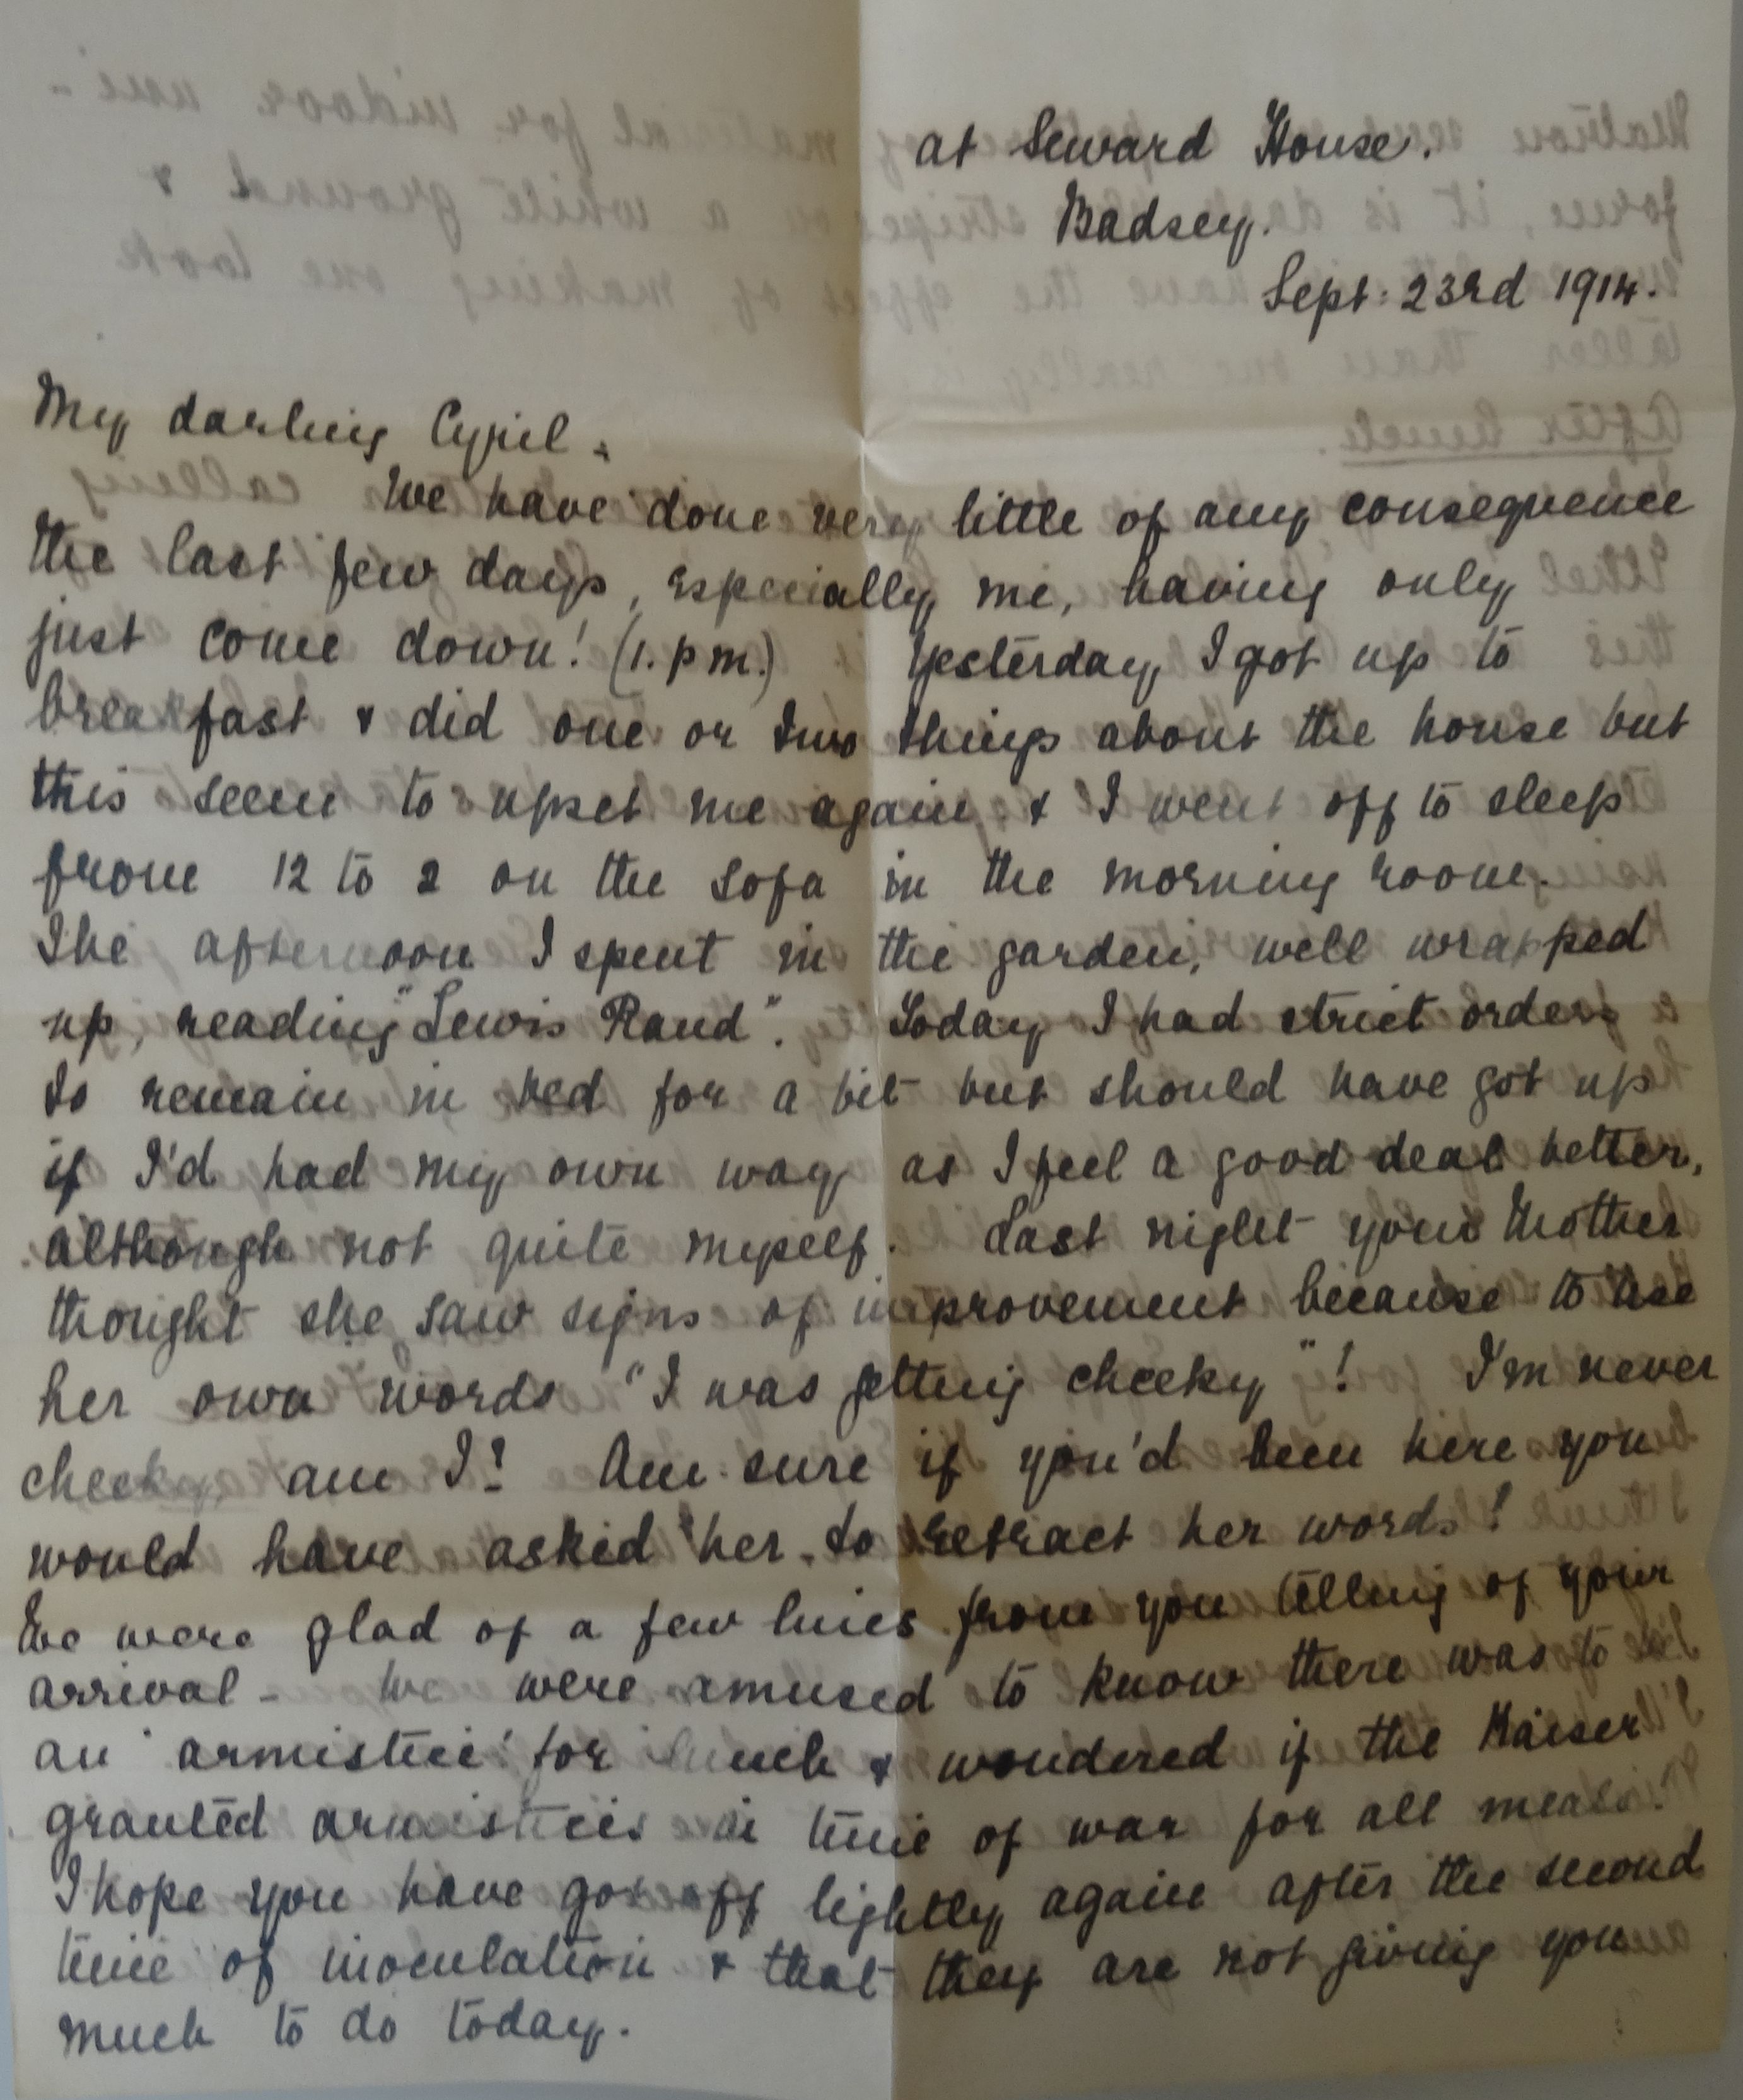 at Seward House.
Badsey.
Sept: 23rd 1914.
My darling Cyril -
We have done very little of any consequence
the last few days, especially me, having only
just come down! (1. p m.) Yesterday I got up to
breakfast & did one or two things about the house but
this seem to upset me again & I went off to sleep
from 12 to 2 on the sofa in the morning room.
The afternoon I spent in the garden, well wrapped
up, reading "Lewis Rand". Today I had strict orders
to remain in bed for a bit but should have got up
if I'd had my own way as I feel a good deal better,
although not quite myself. Last night your Mother
thought she saw signs of improvement because to use
her own words "I was getting cheeky"! I'm never
cheeky, am I? Am sure if you'd been here you
would have asked her to retract her words!
We were glad of a few lines from you telling of your
arrival - We were amused to know there was to be
an armistice for lunch & wondered if the Kaiser
granted armistices in time of war for all meals!
I hope you have got off lightly again after the second
time of inoculation & that they are not giving you
much to do today.